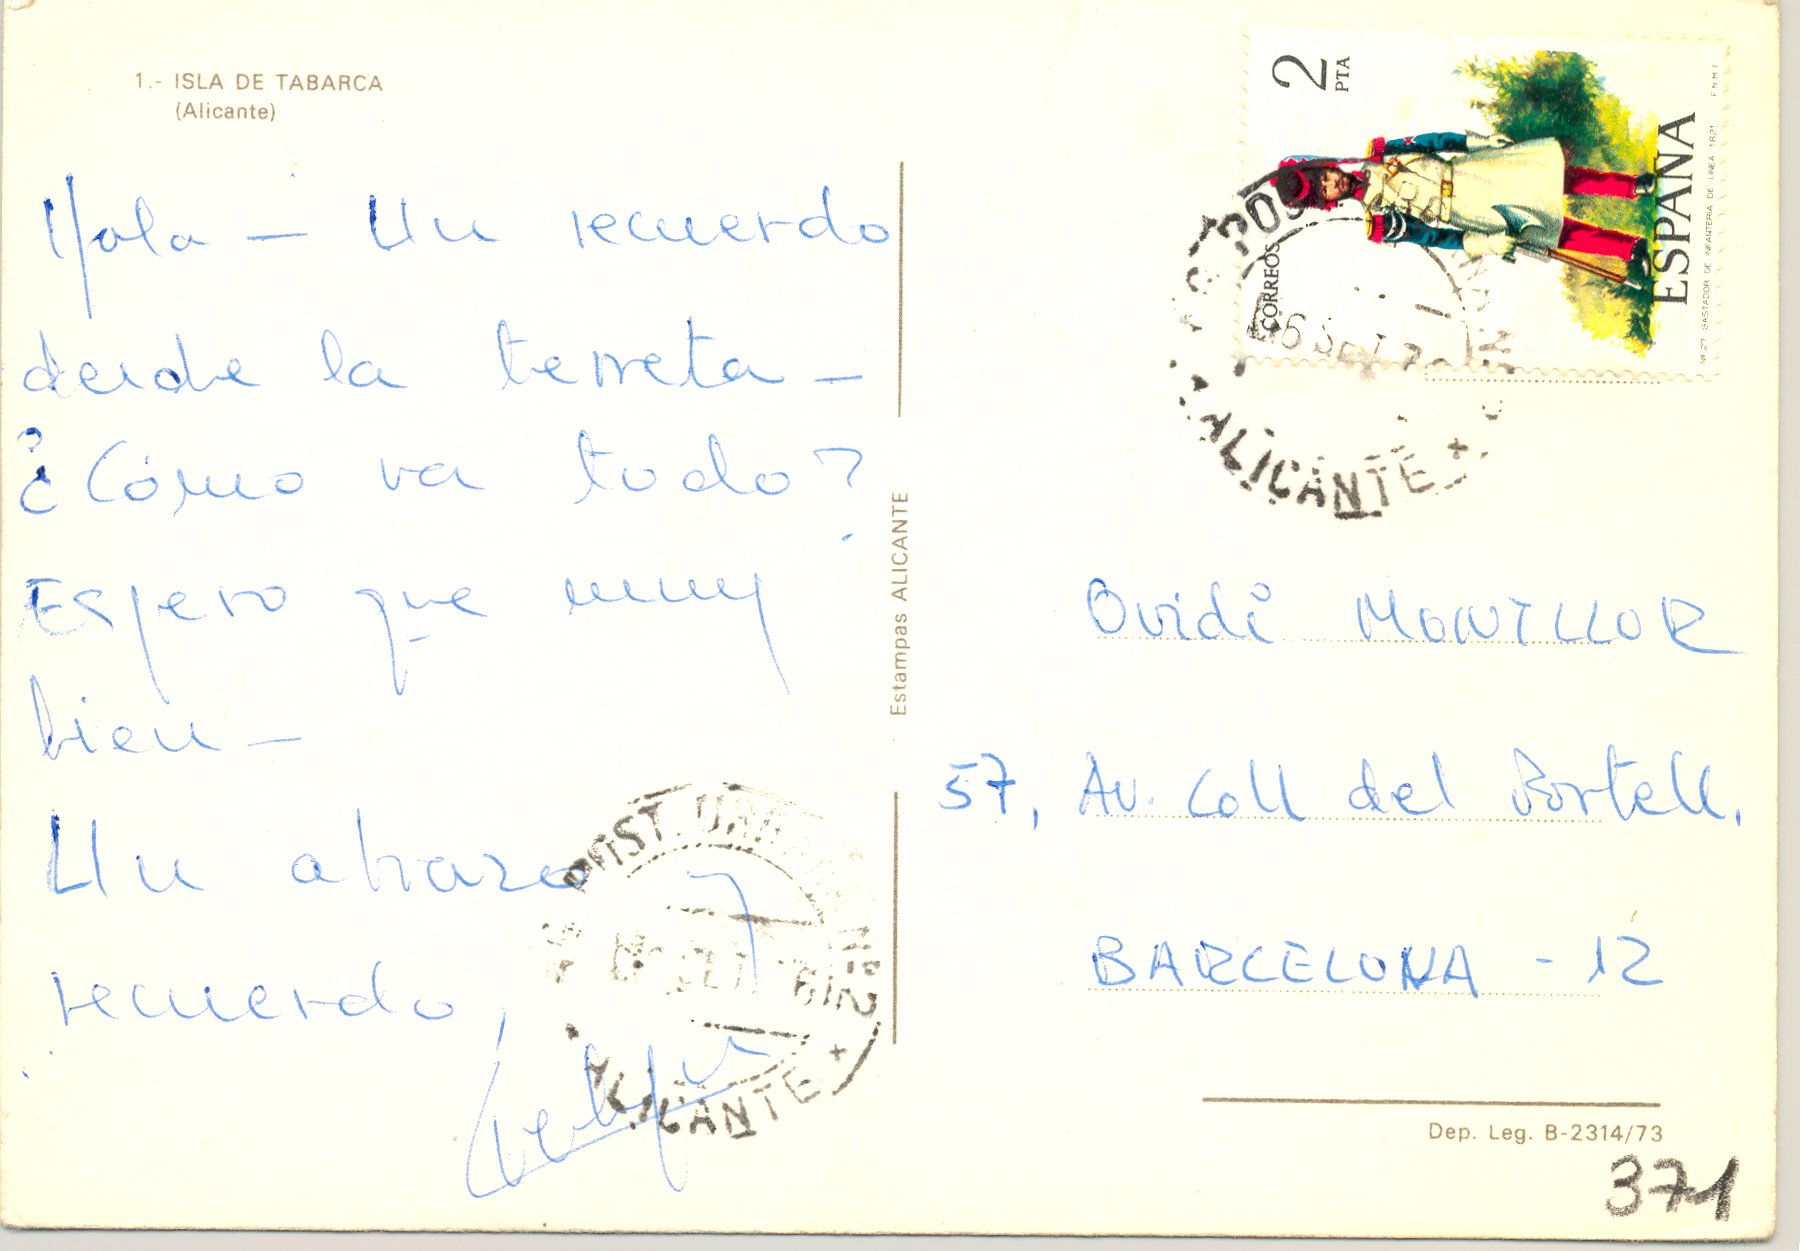 1.- ISLA DE TABARCA
(Alicante)
Hola - Un recuerdo
desde la terreta -
¿Cómo va todo?
Espero que muy
bien -
Un abrazo y
recuerdo,
Estampas ALICANTE
2 PTA
CORREOS
ESPAÑA
Nº 27 GASTADOR DE INFANTERIA DE LINEA 1821
F.N.M.T.
6 SET
ALICANTE
Ovidi MONTLLOR
57, Av. Coll del Portell.
BARCELONA - 12
DIST. URBANO
ALICANTE
Dep. Leg. B-2314/73
371